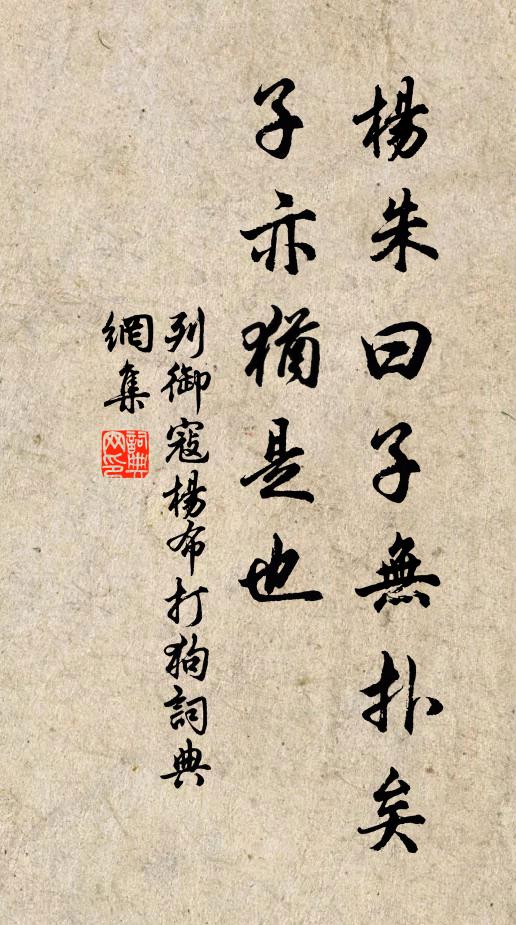 楊朱曰子無扑矣
子亦猶是也
列御寇楊布打狗詞典
網集
詞典
网印